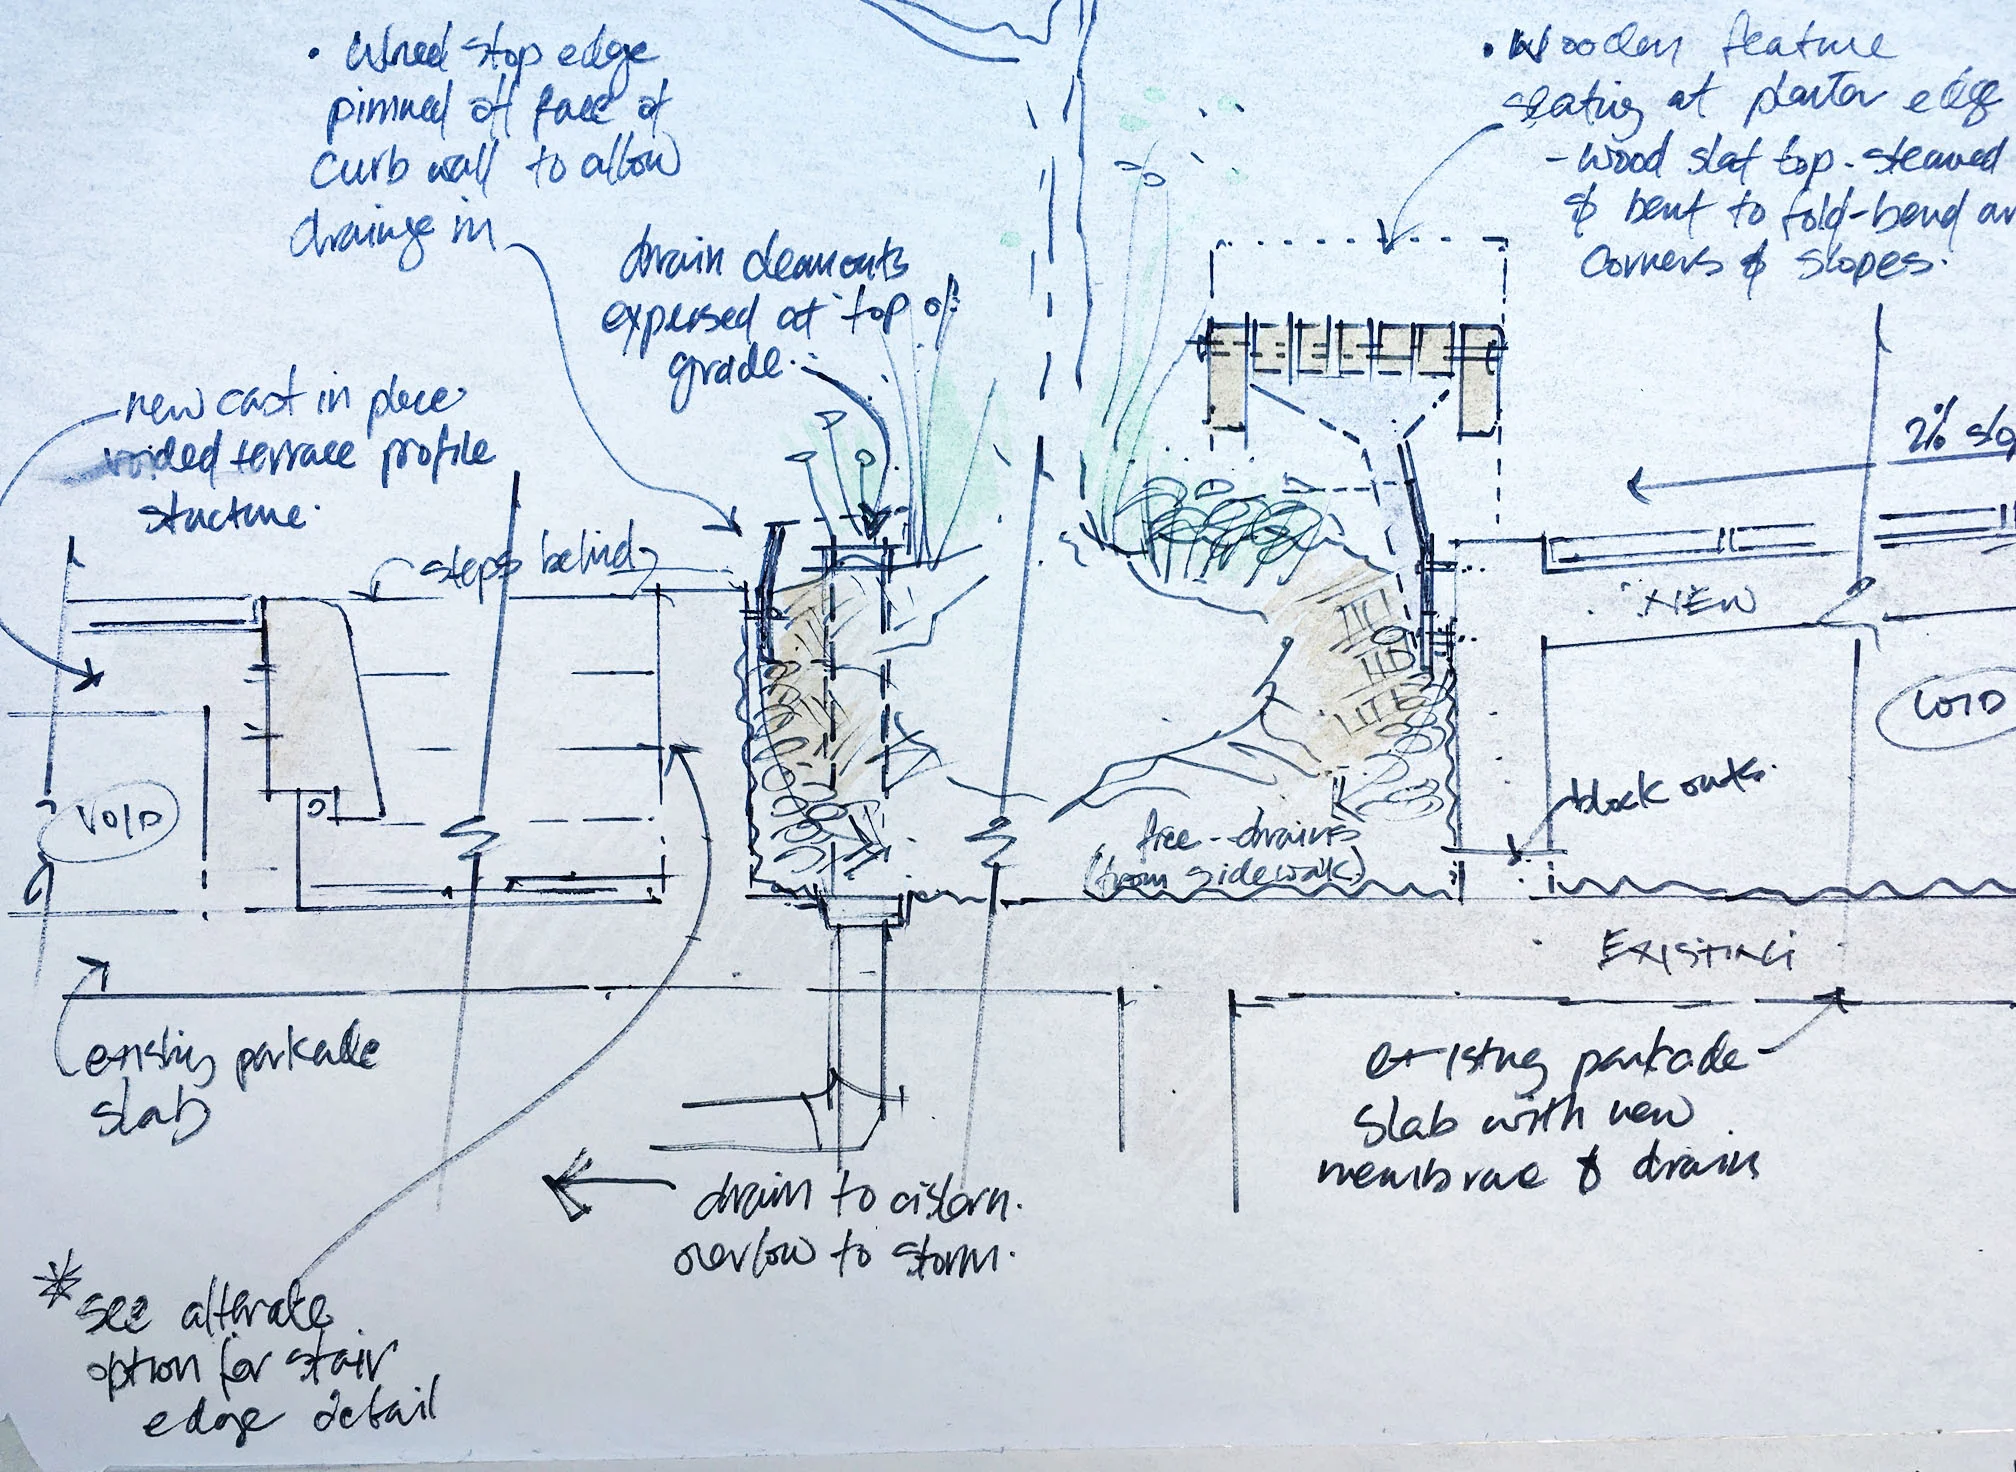 • wheel stop edge
pinned off face of
curb wall to allow
drainge in
• Wooden feature
seating at planter edge
- wood slat top - steamed
& bent to fold-bend ar
corners & slopes.
drain cleanouts
expersed at top of
grade.
new cast in place
voided terrace profile
structure.
steps behind
2% slo
NEW
VOID
VOID
block outs.
free-drains
(from sidewalk)
EXISTING
existing parkade
slab
existing parkade
slab with new
membrane & drain
drain to cistern.
overlow to storm.
* see alternate
option for stair
edge detail